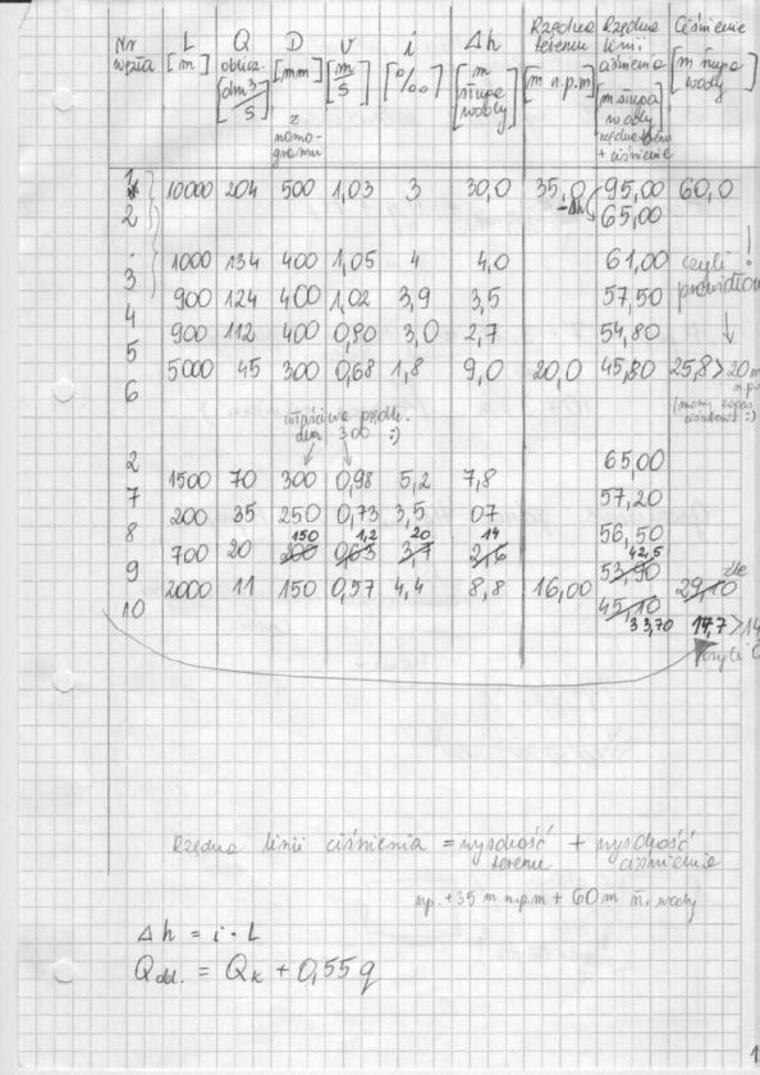 Nr węzła | L [m] | Q oblicz. [dm³/s] | D [mm] z nomogramu | v [m/s] | i [‰] | Δh [m słupa wody] | Rzędna terenu [m n.p.m] | Rzędna linii ciśnienia [m słupa wody] rzędna terenu + ciśnienie | Ciśnienie [m słupa wody]
1
10000 204 500 1,03 3 30,0 35,0 95,00 60,0
2 -Δh 65,00
1000 134 400 1,05 4 4,0 61,00 czyli !
3
900 124 400 1,02 3,9 3,5 57,50
4
900 112 400 0,90 3,0 2,7 54,80
5
5000 45 300 0,68 1,8 9,0 20,0 45,80 25,8 > 20 m
6 n.p.
(mamy zapas ciśnienia :)
właściwe prędk.
dla 300 :)
2 65,00
1500 70 300 0,98 5,2 7,8
7 57,20
200 35 250 0,73 3,5 07
8 56,50
150 1,2 20 14
700 20 200 0,63 3,7 2,6 42,5
9 53,90 źle
2000 11 150 0,57 4,4 8,8 16,00 29,10
10 45,10
33,70 17,7 > 14
Rzędna linii ciśnienia = wysokość terenu + wysokość ciśnienie
np. +35 m n.p.m + 60 m sł. wody
Δh = i · L
Qobl. = Qk + 0,55 q
1